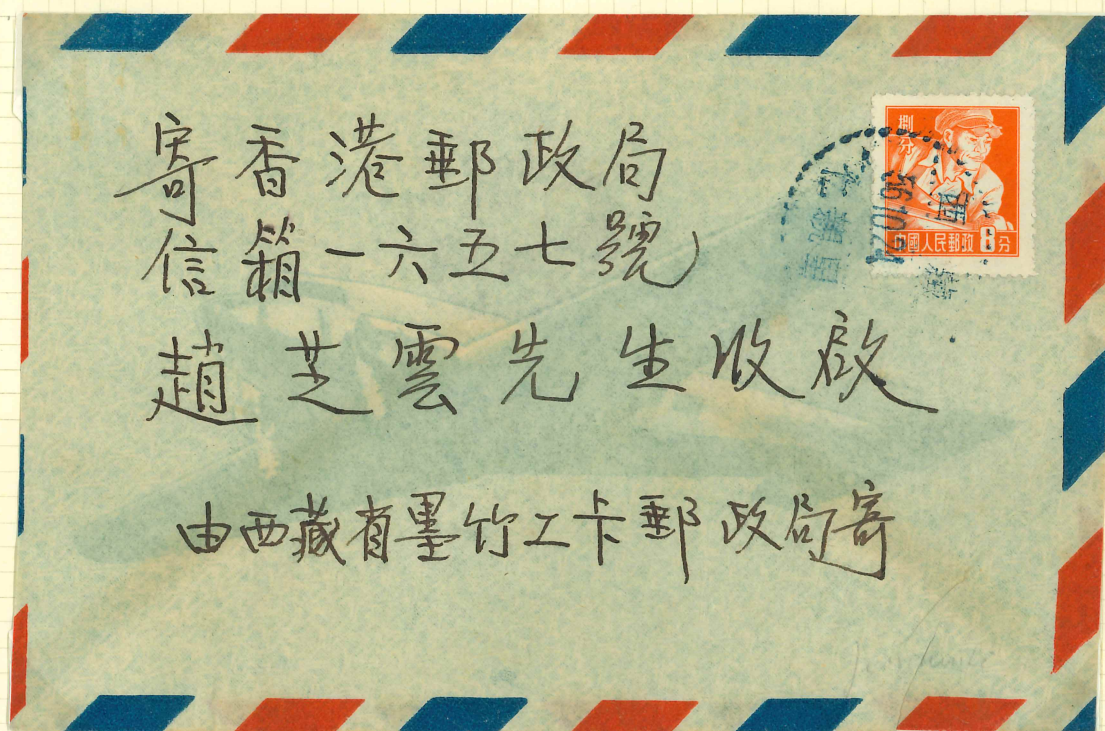 寄香港郵政局
信箱一六五七號
趙芝雲先生收啟
由西藏省墨竹工卡郵政局寄
捌分
中國人民郵政 8 分
56.10.21
西